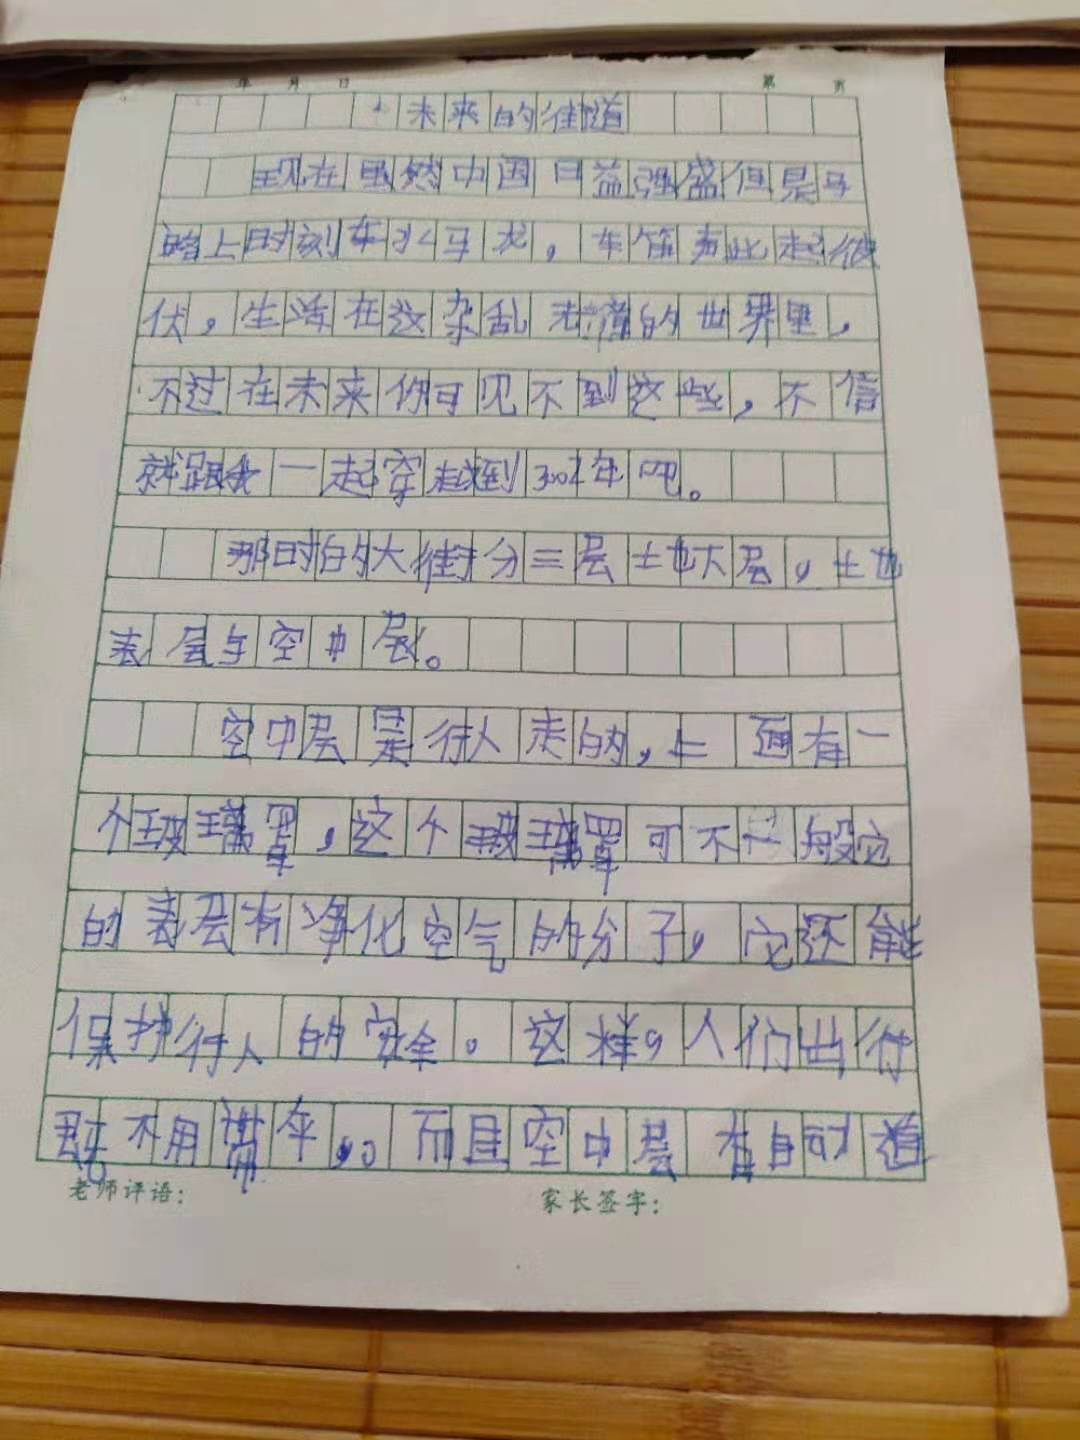 年 月 日 第 页
未来的街道
现在虽然中国日益强盛但是马
路上时刻车水马龙，车笛声此起彼
伏，生活在这杂乱 的世界里，
不过在未来你可见不到这些，不信
就跟我一起穿越到 年吧。
那时的大街分三层地下层，地
表层与空中层。
空中层是行人走的，上面有一
个玻璃罩，这个玻璃罩可不一般它
的表层有净化空气的分子，它还能
保护行人的安全。这样，人们出行
既不用带伞，。而且空中层 有自动 道
老师评语： 家长签字：